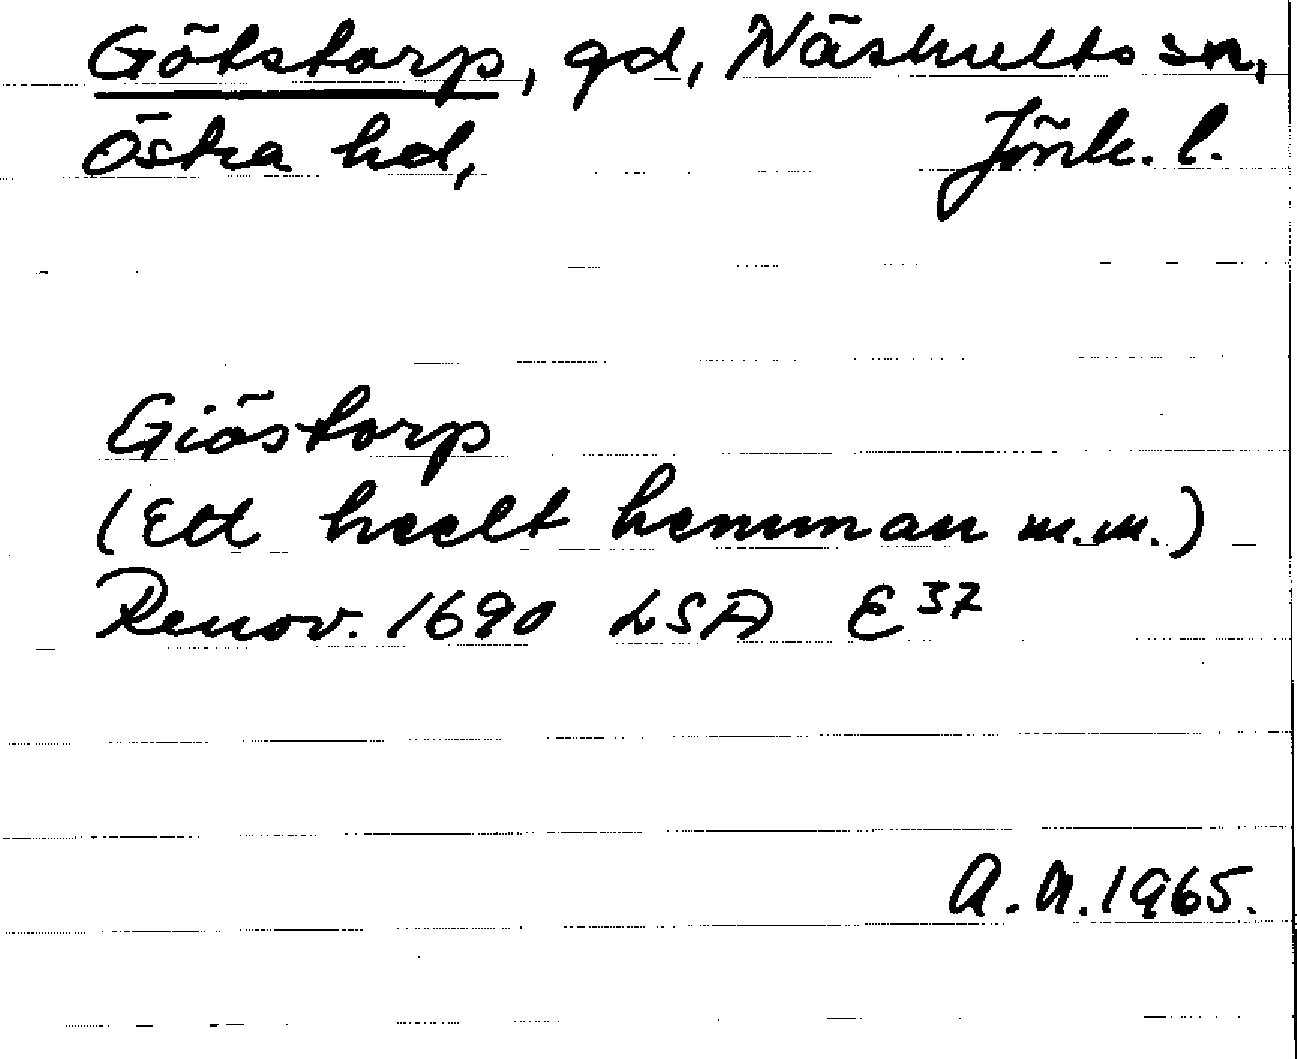 Götstorp, gd, Näshults sn,
Östra hd, Jönk. l.
Giöstorp
(Ett heelt hemman m.m.)
Renov. 1690 LSA E 37
A.N. 1965.